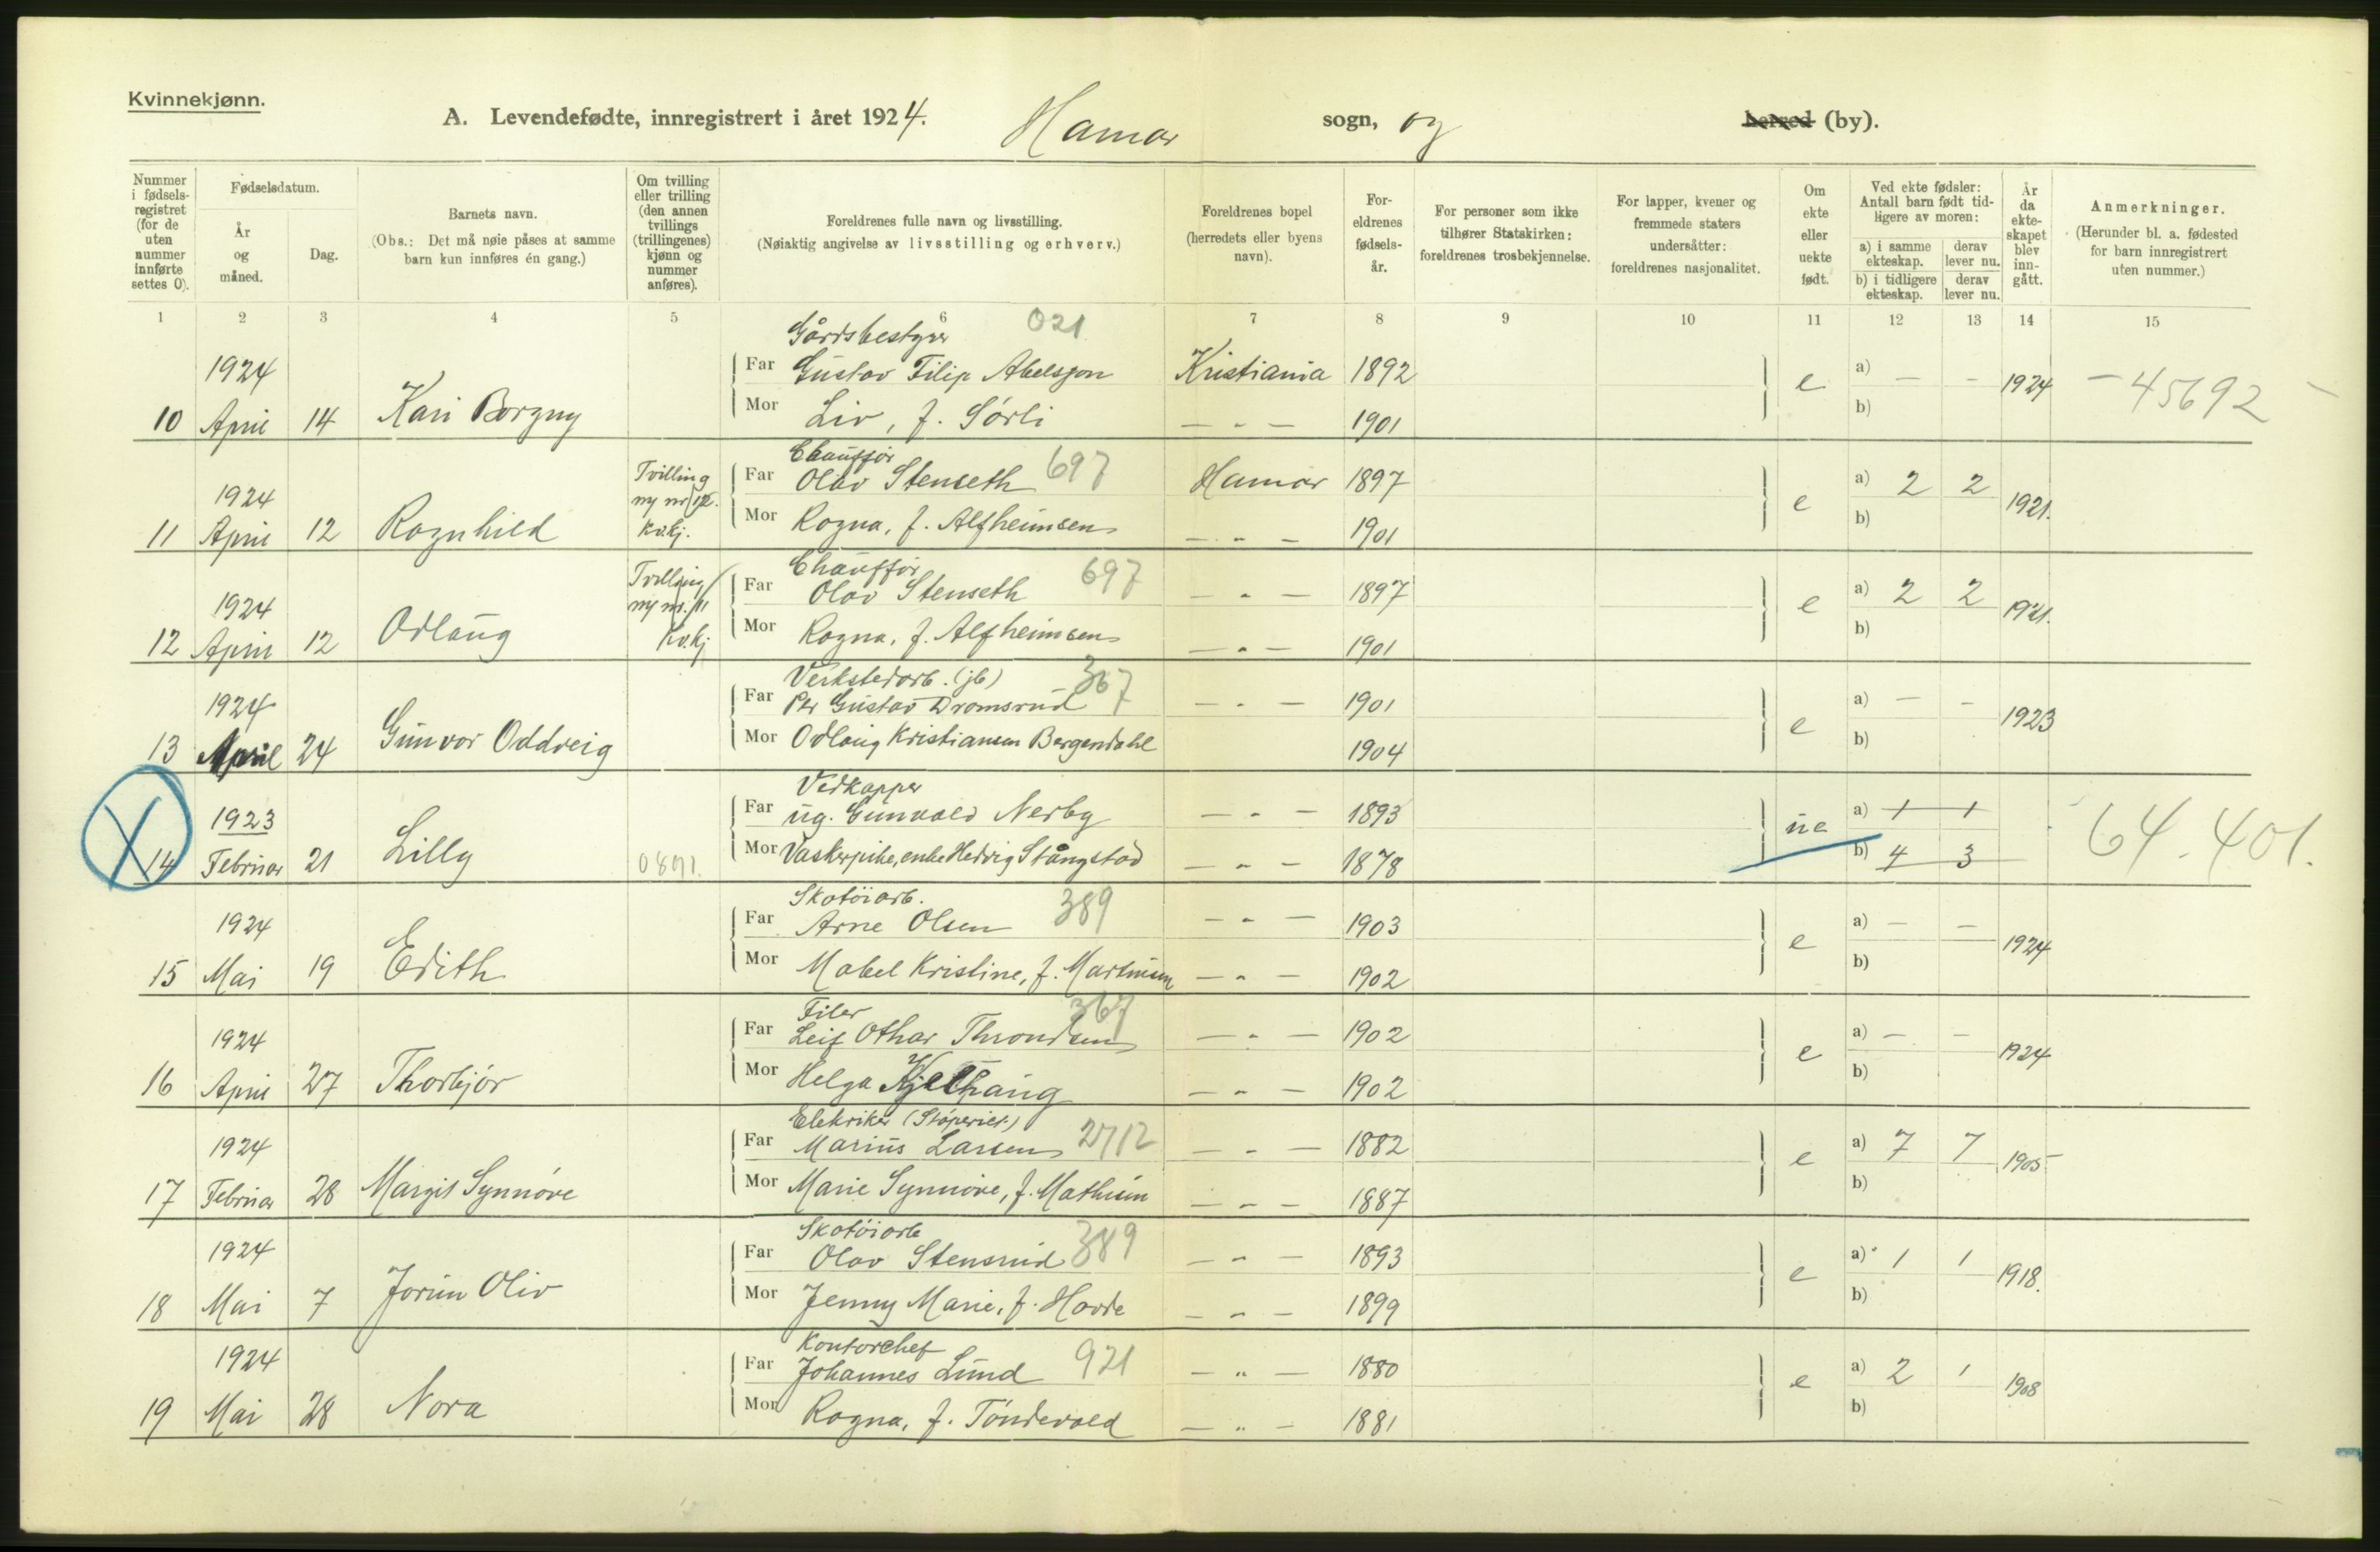 Kvinnekjønn.
A. Levendefødte, innregistrert i året 1924. Hamar sogn, og herred (by).
Nummer i fødsels-registret (for de uten nummer innførte settes 0).
Fødselsdatum.
År og måned.
Dag.
Barnets navn.
(Obs.: Det må nøie påses at samme barn kun innføres én gang.)
Om tvilling eller trilling (den annen tvillings (trillingenes) kjønn og nummer anføres).
Foreldrenes fulle navn og livsstilling.
(Nøiaktig angivelse av livsstilling og erhverv.)
Foreldrenes bopel (herredets eller byens navn).
For-eldrenes fødsels-år.
For personer som ikke tilhører Statskirken: foreldrenes trosbekjennelse.
For lapper, kvener og fremmede staters undersåtter: foreldrenes nasjonalitet.
Om ekte eller uekte født.
Ved ekte fødsler: Antall barn født tid-ligere av moren:
a) i samme ekteskap. derav lever nu.
b) i tidligere ekteskap. derav lever nu.
År da ekte-skapet blev inn-gått.
Anmerkninger.
(Herunder bl. a. fødested for barn innregistrert uten nummer.)
1 2 3 4 5 6 7 8 9 10 11 12 13 14 15
Gårdsbestyrer 021
1924 Far Gustav Filip Abelsson Kristiania 1892 e a) — - 1924 - 45692 -
10 April 14 Kari Borgny Mor Liv, f. Sörli — " — 1901 b)
Chaufför 697
1924 Tvilling ny nr 12. Kv.kj. Far Olav Stenseth Hamar 1897 e a) 2 2 1921.
11 April 12 Ragnhild Mor Ragna, f. Alfheimsen — " — 1901 b)
Chauffør 697
1924 Tvilling ny nr. 11 Kv.kj Far Olav Stenseth — " — 1897 e a) 2 2 1921.
12 April 12 Odlaug Mor Ragna, f. Alfheimsen — " — 1901 b)
Verkstedarb. (jb) 367
1924 Far Per Gustav Dromsrud — " — 1901 e a) — - 1923
13 April 24 Gunvor Oddveig Mor Odlaug Kristiansen Bergendahl 1904 b)
Vedkapper
1923 Far ug. Gunvald Nerby — " — 1893 ue a) 1 1 64.401.
14 Februar 21 Lilly 0891. Mor Vaskerpike, enke Hedvig Stångstad — " — 1878 b) 4 3
Skotöiarb. 389
1924 Far Arne Olsen — " — 1903 e a) — — 1924
15 Mai 19 Edith Mor Mabel Kristine, f. Martinsen — " — 1902 b)
Filer 367
1924 Far Leif Othar Throndsen — " — 1902 e a) — — 1924
16 April 27 Thorbjör Mor Helga Kjelhaug — " — 1902 b)
Elektriker (Stöperiet.) 2712
1924 Far Marius Larsen — " — 1882 e a) 7 7 1905
17 Februar 28 Margit Synnöve Mor Marie Synnöve, f. Mathisen — " — 1887 b)
Skotöiarb 389
1924 Far Olav Stensrud — " — 1893 e a) 1 1 1918.
18 Mai 7 Jorun Oliv Mor Jenny Marie, f. Hovde — " — 1899 b)
Kontorchef 921
1924 Far Johannes Lund — " — 1880 e a) 2 1 1908
19 Mai 28 Nora Mor Ragna, f. Töndevold — " — 1881 b)